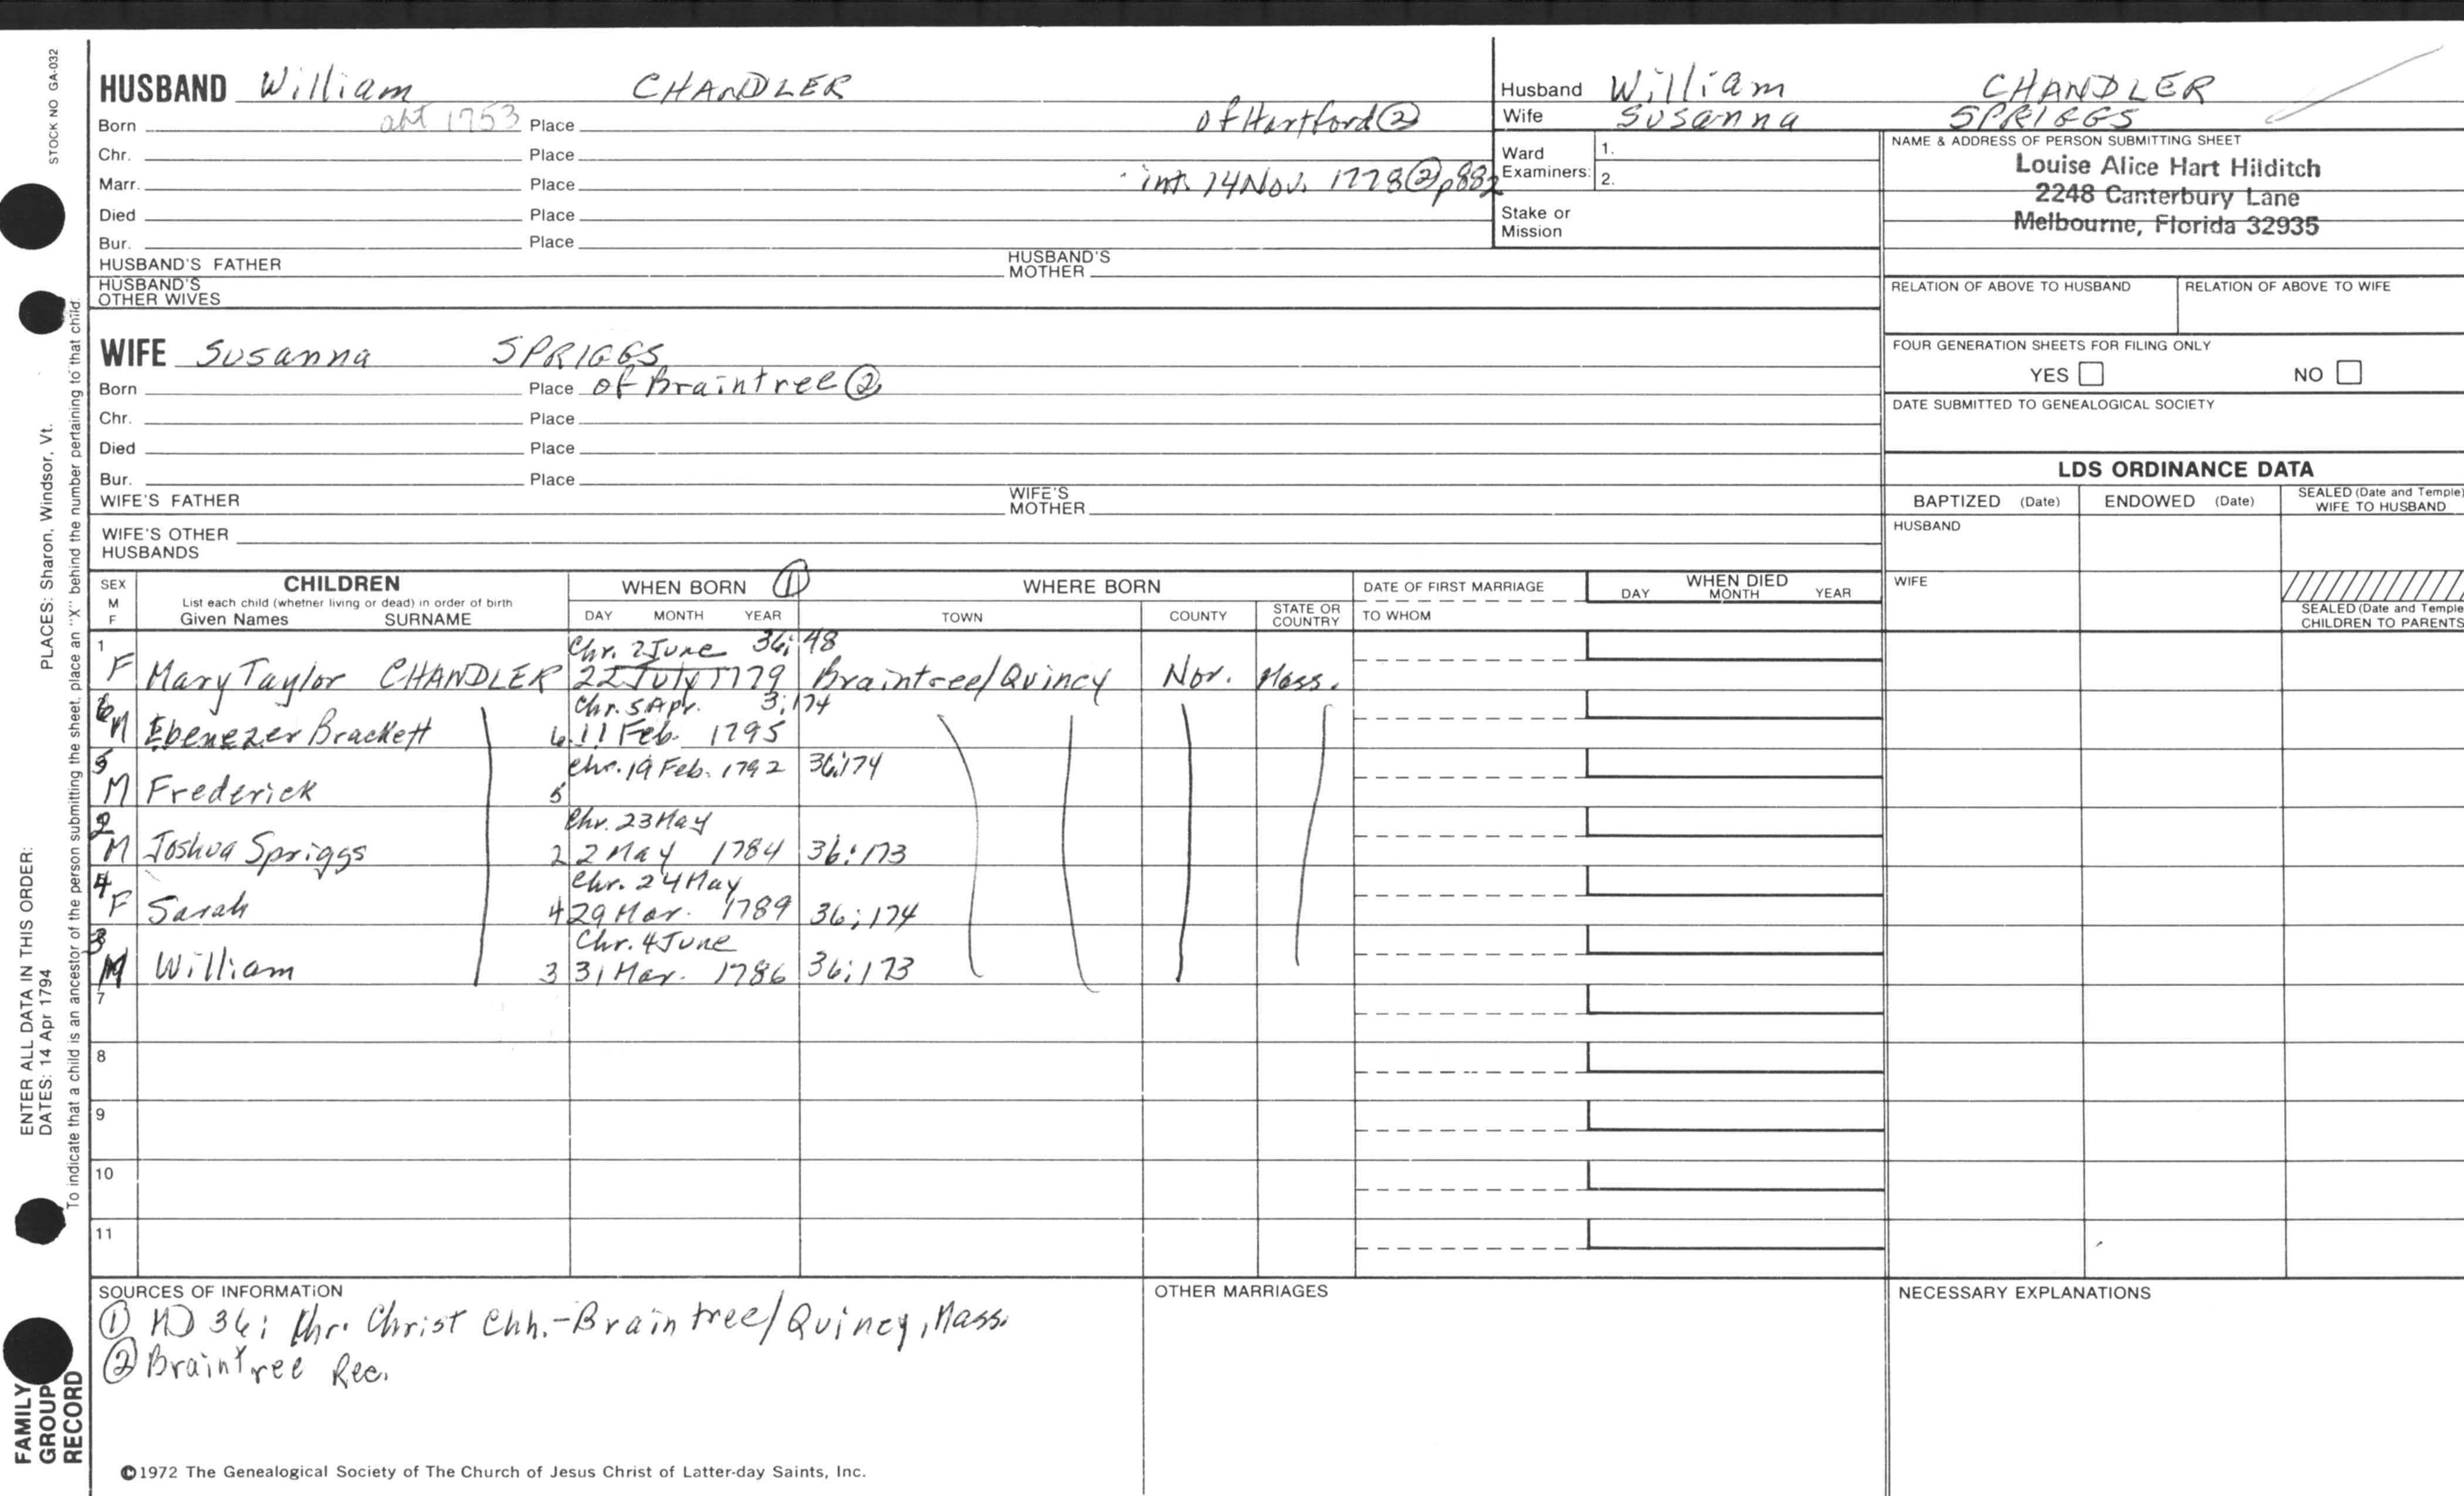 STOCK NO GA-032
HUSBAND William CHANDLER
Born abt 1753 Place of Hartford ②
Chr. Place
Marr. Place int. 14 Nov. 1778 ② p882
Died Place
Bur. Place
HUSBAND'S FATHER HUSBAND'S MOTHER
HUSBAND'S OTHER WIVES
WIFE Susanna SPRIGGS
Born Place of Braintree ②
Chr. Place
Died Place
Bur. Place
WIFE'S FATHER WIFE'S MOTHER
WIFE'S OTHER HUSBANDS
Husband William CHANDLER
Wife Susanna SPRIGGS
Ward Examiners: 1.
2.
Stake or Mission
NAME & ADDRESS OF PERSON SUBMITTING SHEET
Louise Alice Hart Hilditch
2248 Canterbury Lane
Melbourne, Florida 32935
RELATION OF ABOVE TO HUSBAND RELATION OF ABOVE TO WIFE
FOUR GENERATION SHEETS FOR FILING ONLY
YES NO
DATE SUBMITTED TO GENEALOGICAL SOCIETY
LDS ORDINANCE DATA
BAPTIZED (Date) ENDOWED (Date) SEALED (Date and Temple) WIFE TO HUSBAND
HUSBAND
WIFE
SEALED (Date and Temple CHILDREN TO PARENTS
SEX M F CHILDREN WHEN BORN ① WHERE BORN DATE OF FIRST MARRIAGE WHEN DIED
List each child (whether living or dead) in order of birth
Given Names SURNAME DAY MONTH YEAR TOWN COUNTY STATE OR COUNTRY TO WHOM DAY MONTH YEAR
1 Chr. 2 June 36; 48
F Mary Taylor CHANDLER 22 July 1779 Braintree/Quincy Nor. Mass.
6 Chr. 5 Apr. 3; 174
M Ebenezer Brackett 6 11 Feb. 1795
5 Chr. 19 Feb. 1792 36:174
M Frederick 5
2 Chr. 23 May
M Joshua Spriggs 2 2 May 1784 36:173
4 Chr. 24 May
F Sarah 4 29 Mar. 1789 36; 174
3 Chr. 4 June
M William 3 31 Mar. 1786 36; 173
7
8
9
10
11
SOURCES OF INFORMATION OTHER MARRIAGES NECESSARY EXPLANATIONS
① MD 36; Christ Chh.-Braintree/Quincy, Mass.
② Braintree Rec.
©1972 The Genealogical Society of The Church of Jesus Christ of Latter-day Saints, Inc.
ENTER ALL DATA IN THIS ORDER: PLACES: Sharon, Windsor, Vt.
DATES: 14 Apr 1794
To indicate that a child is an ancestor of the person submitting the sheet, place an "X" behind the number pertaining to that child.
FAMILY
GROUP
RECORD